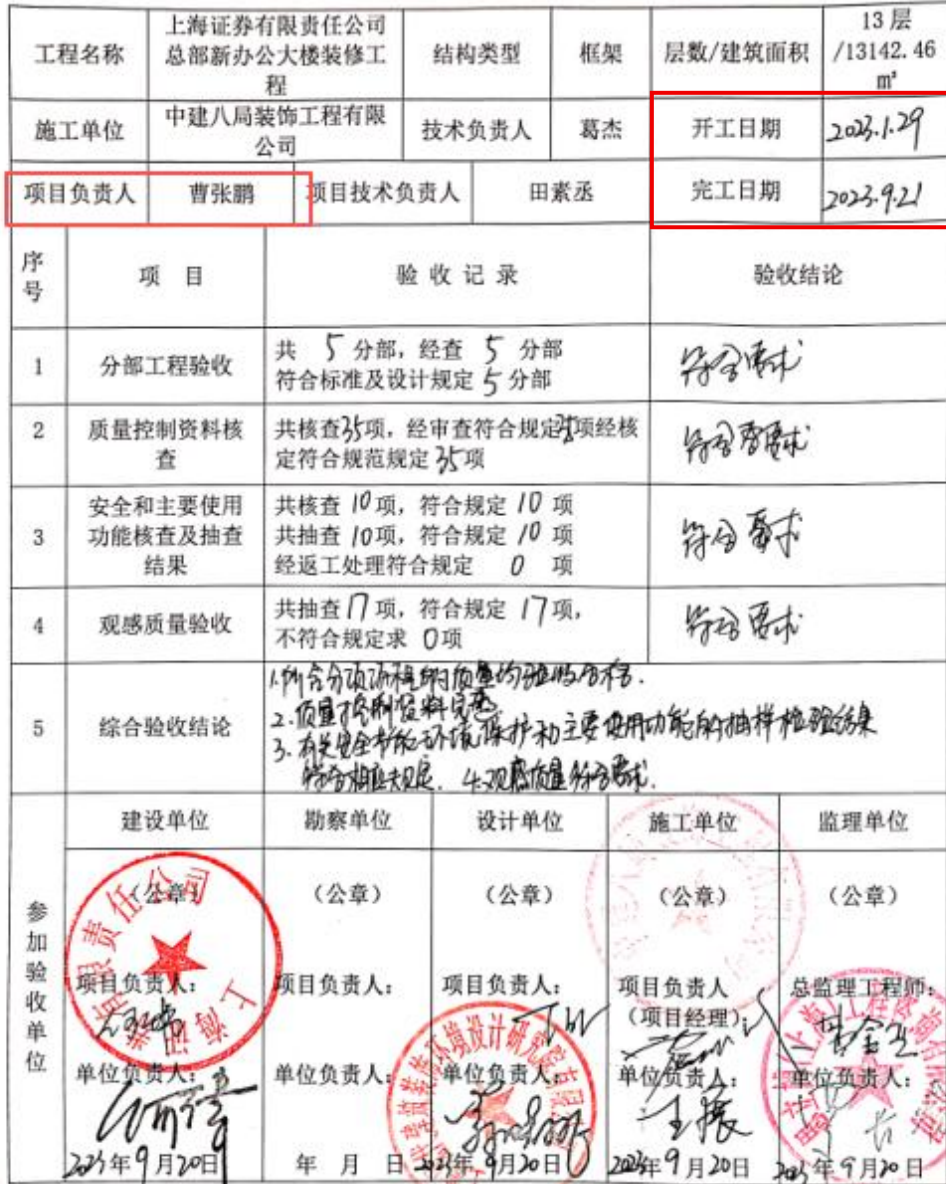 工程名称 上海证券有限责任公司总部新办公大楼装修工程 结构类型 框架 层数/建筑面积 13层/13142.46㎡
施工单位 中建八局装饰工程有限公司 技术负责人 葛杰 开工日期 2023.1.29
项目负责人 曹张鹏 项目技术负责人 田素丞 完工日期 2023.9.21
序号 项 目 验 收 记 录 验收结论
1 分部工程验收 共 5 分部，经查 5 分部
符合标准及设计规定 5 分部 符合要求
2 质量控制资料核查 共核查35项，经审查符合规定35项经核
定符合规范规定35项 符合要求
3 安全和主要使用功能核查及抽查结果 共核查 10项，符合规定 10 项
共抽查 10项，符合规定 10 项
经返工处理符合规定 0 项 符合要求
4 观感质量验收 共抽查17项，符合规定 17项，
不符合规定求 0项 符合要求
5 综合验收结论
1.所含分项工程的质量均验收合格.
2.质量控制资料完整
3.有关安全节能环境保护和主要使用功能的抽样检验结果
符合相应规定. 4.观感质量符合要求.
参加验收单位
建设单位 勘察单位 设计单位 施工单位 监理单位
（公章） （公章） （公章） （公章） （公章）
项目负责人： 项目负责人： 项目负责人： 项目负责人（项目经理）： 总监理工程师：
单位负责人： 单位负责人： 单位负责人： 单位负责人： 单位负责人：
王振
2023年9月20日 年 月 日 2023年9月20日 2023年9月20日 2023年9月20日